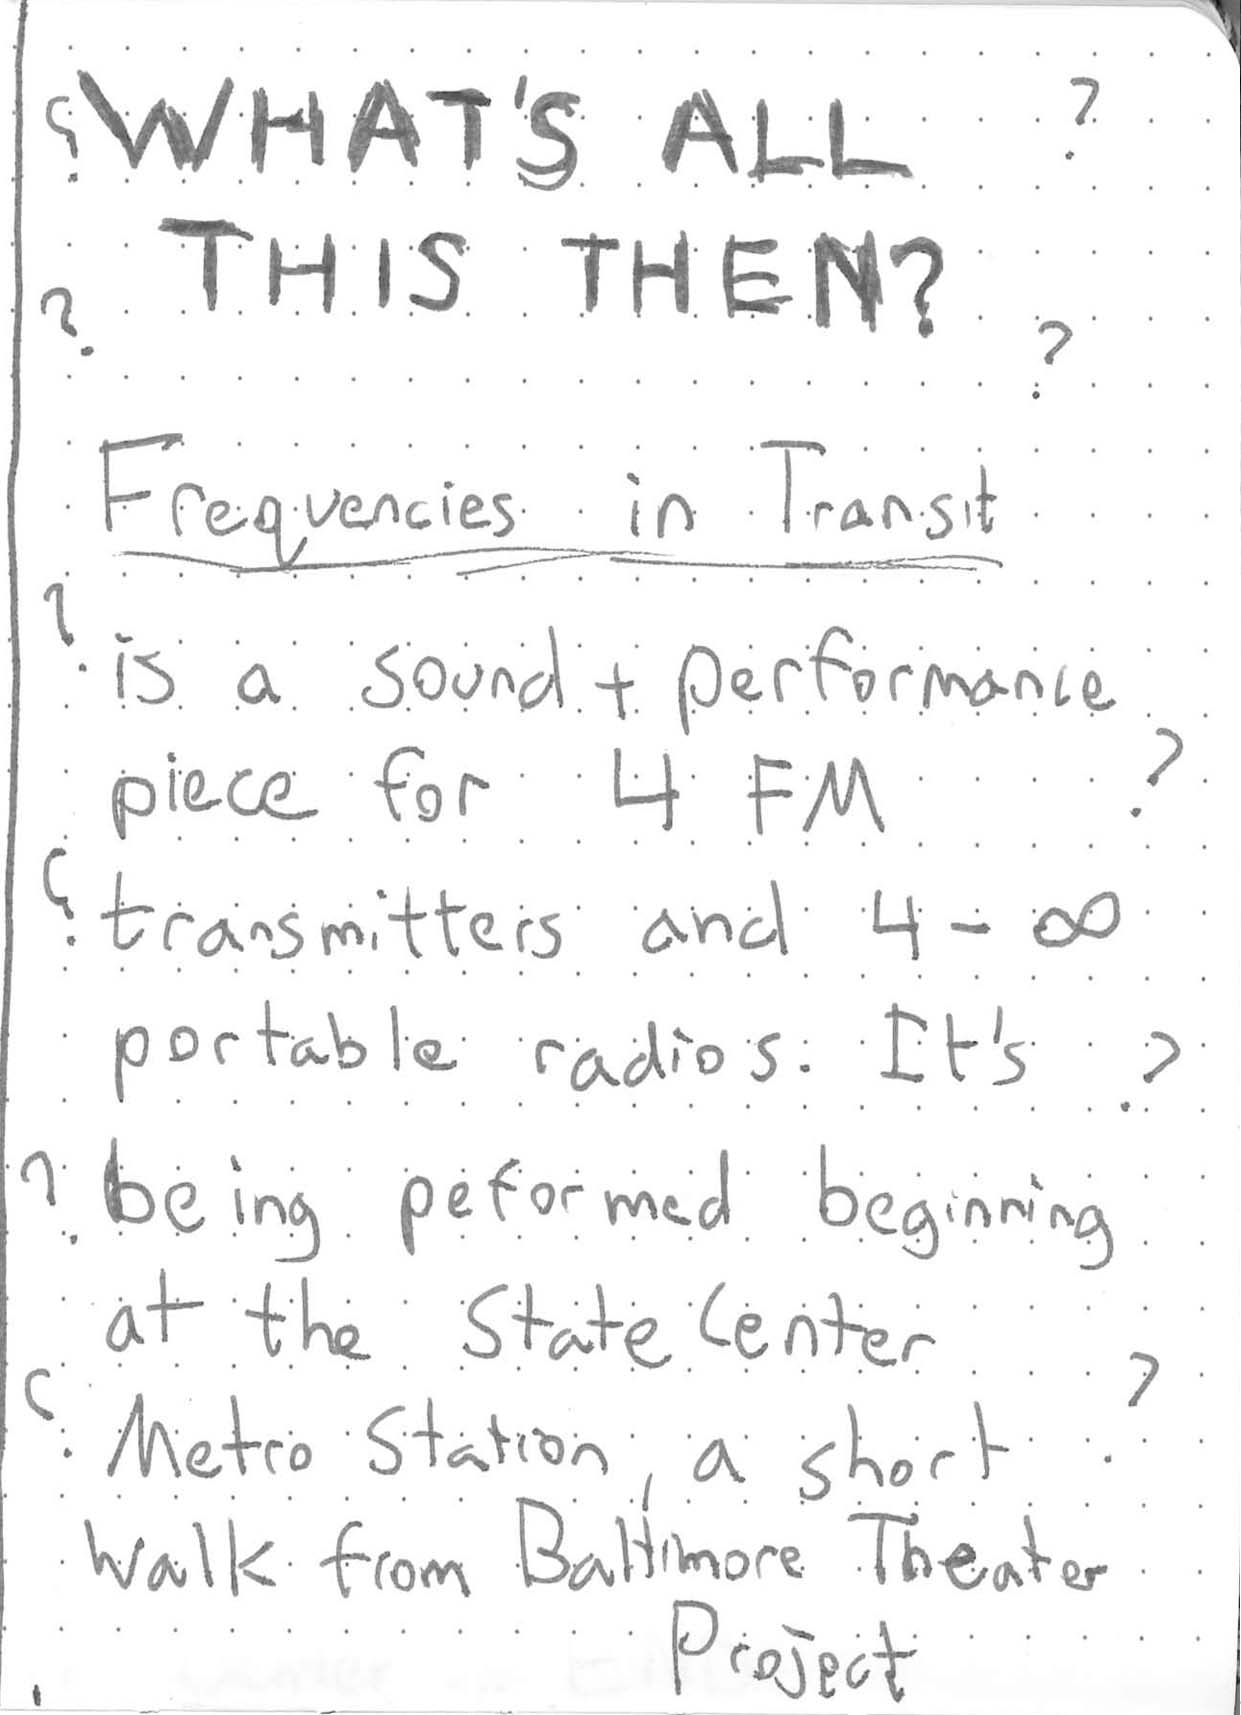 WHAT'S ALL
THIS THEN?
Frequencies in Transit
is a sound + performance
piece for 4 FM
transmitters and 4 - ∞
portable radios. It's
being peformed beginning
at the State Center
Metro Station, a short
walk from Baltimore Theater
Project